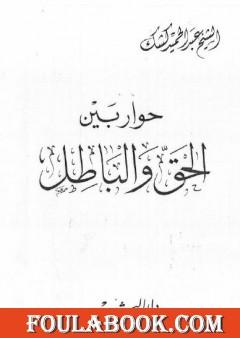 الشيخ عبد الحميد كشك
حوار بين
الحق والباطل
FOULABOOK.COM